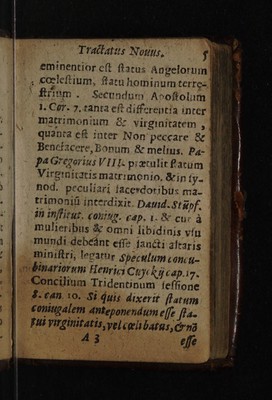 Tractatus Nouus. 5
eminentior est status Angelorum
cœlestium, statu hominum terre-
strium. Secundum Apostolum
1. Cor. 7. tanta est differentia inter
matrimonium & virginitatem,
quanta est inter Non peccare &
Benefacere, Bonum & melius. Pa-
pa Gregorius VIII. prætulit statum
Virginitatis matrimonio, & in sy-
nod. peculiari sacerdotibus ma-
trimoniū interdixit. Dauid. Stüpf.
in institut. coniug. cap. 1. & cur à
mulieribus & omni libidinis vsu
mundi debeant esse sancti altaris
ministri, legatur Speculum concu-
binariorum Henrici Cuyckij cap. 17.
Concilium Tridentinum sessione
8. can. 10. Si quis dixerit statum
coniugalem anteponendum esse sta-
tui virginitatis, vel cœlibatus, & nō
A 3 esse